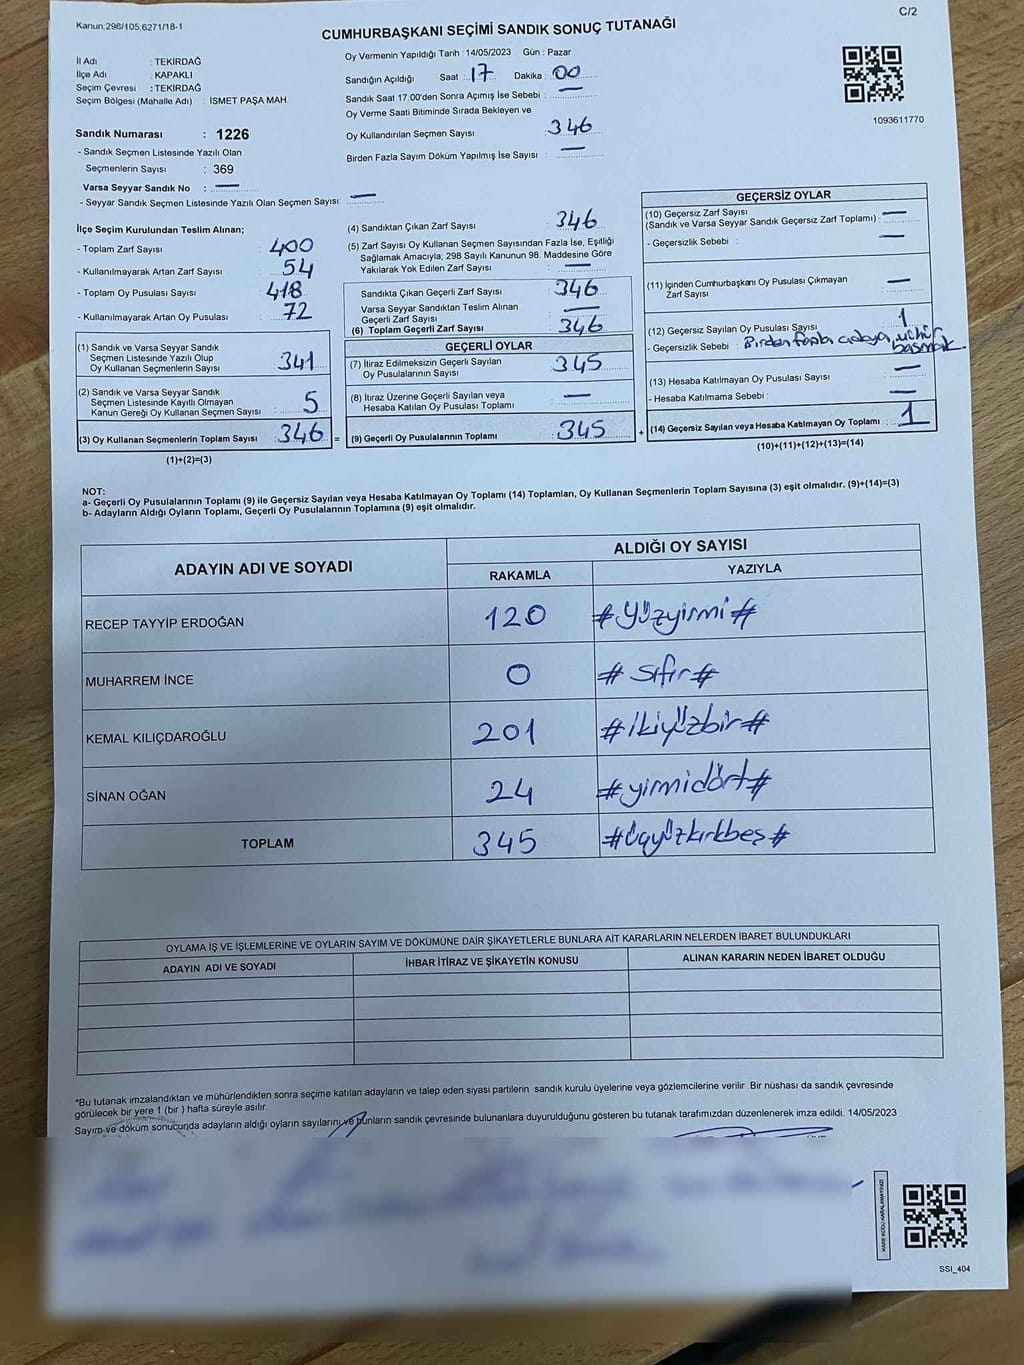 Kanun:298/105,6271/18-1
C/2
CUMHURBAŞKANI SEÇİMİ SANDIK SONUÇ TUTANAĞI
İl Adı : TEKİRDAĞ
İlçe Adı : KAPAKLI
Seçim Çevresi : TEKİRDAĞ
Seçim Bölgesi (Mahalle Adı) : İSMET PAŞA MAH
Sandık Numarası : 1226
- Sandık Seçmen Listesinde Yazılı Olan
Seçmenlerin Sayısı : 369
Varsa Seyyar Sandık No : —
- Seyyar Sandık Seçmen Listesinde Yazılı Olan Seçmen Sayısı: —
Oy Vermenin Yapıldığı Tarih : 14/05/2023 Gün : Pazar
Sandığın Açıldığı Saat : 17 Dakika : 00
Sandık Saat 17:00'den Sonra Açımış İse Sebebi : —
Oy Verme Saati Bitiminde Sırada Bekleyen ve
Oy Kullandırılan Seçmen Sayısı : 346
Birden Fazla Sayım Döküm Yapılmış İse Sayısı : —
1093611770
İlçe Seçim Kurulundan Teslim Alınan;
- Toplam Zarf Sayısı : 400
- Kullanılmayarak Artan Zarf Sayısı : 54
- Toplam Oy Pusulası Sayısı : 418
- Kullanılmayarak Artan Oy Pusulası : 72
(1) Sandık ve Varsa Seyyar Sandık
Seçmen Listesinde Yazılı Olup
Oy Kullanan Seçmenlerin Sayısı : 341
(2) Sandık ve Varsa Seyyar Sandık
Seçmen Listesinde Kayıtlı Olmayan
Kanun Gereği Oy Kullanan Seçmen Sayısı : 5
(3) Oy Kullanan Seçmenlerin Toplam Sayısı : 346 =
(1)+(2)=(3)
(4) Sandıktan Çıkan Zarf Sayısı : 346
(5) Zarf Sayısı Oy Kullanan Seçmen Sayısından Fazla İse, Eşitliği
Sağlamak Amacıyla; 298 Sayılı Kanunun 98. Maddesine Göre
Yakılarak Yok Edilen Zarf Sayısı : —
Sandıkta Çıkan Geçerli Zarf Sayısı : 346
Varsa Seyyar Sandıktan Teslim Alınan
Geçerli Zarf Sayısı : —
(6) Toplam Geçerli Zarf Sayısı : 346
GEÇERLİ OYLAR
(7) İtiraz Edilmeksizin Geçerli Sayılan
Oy Pusulalarının Sayısı : 345
(8) İtiraz Üzerine Geçerli Sayılan veya
Hesaba Katılan Oy Pusulası Toplamı : —
(9) Geçerli Oy Pusulalarının Toplamı : 345 +
GEÇERSİZ OYLAR
(10) Geçersiz Zarf Sayısı
(Sandık ve Varsa Seyyar Sandık Geçersiz Zarf Toplamı) : —
- Geçersizlik Sebebi : —
(11) İçinden Cumhurbaşkanı Oy Pusulası Çıkmayan
Zarf Sayısı : —
(12) Geçersiz Sayılan Oy Pusulası Sayısı : 1
- Geçersizlik Sebebi : Birden fazla adaya mühür
basmak.
(13) Hesaba Katılmayan Oy Pusulası Sayısı : —
- Hesaba Katılmama Sebebi : —
(14) Geçersiz Sayılan veya Hesaba Katılmayan Oy Toplamı : 1
(10)+(11)+(12)+(13)=(14)
NOT:
a- Geçerli Oy Pusulalarının Toplamı (9) ile Geçersiz Sayılan veya Hesaba Katılmayan Oy Toplamı (14) Toplamları, Oy Kullanan Seçmenlerin Toplam Sayısına (3) eşit olmalıdır. (9)+(14)=(3)
b- Adayların Aldığı Oyların Toplamı, Geçerli Oy Pusulalarının Toplamına (9) eşit olmalıdır.
ADAYIN ADI VE SOYADI
ALDIĞI OY SAYISI
RAKAMLA YAZIYLA
RECEP TAYYİP ERDOĞAN 120 #yüzyirmi#
MUHARREM İNCE 0 #sıfır#
KEMAL KILIÇDAROĞLU 201 #ikiyüzbir#
SİNAN OĞAN 24 #yirmidört#
TOPLAM 345 #üçyüzkırkbeş#
OYLAMA İŞ VE İŞLEMLERİNE VE OYLARIN SAYIM VE DÖKÜMÜNE DAİR ŞİKAYETLERLE BUNLARA AİT KARARLARIN NELERDEN İBARET BULUNDUKLARI
ADAYIN ADI VE SOYADI İHBAR İTİRAZ VE ŞİKAYETİN KONUSU ALINAN KARARIN NEDEN İBARET OLDUĞU
*Bu tutanak imzalandıktan ve mühürlendikten sonra seçime katılan adayların ve talep eden siyasi partilerin sandık kurulu üyelerine veya gözlemcilerine verilir .Bir nüshası da sandık çevresinde
görülecek bir yere 1 (bir ) hafta süreyle asılır.
Sayım ve döküm sonucunda adayların aldığı oyların sayılarını ve bunların sandık çevresinde bulunanlara duyurulduğunu gösteren bu tutanak tarafımızdan düzenlenerek imza edildi. 14/05/2023
KARE KODU KARALAMAYINIZ!
SSI_404